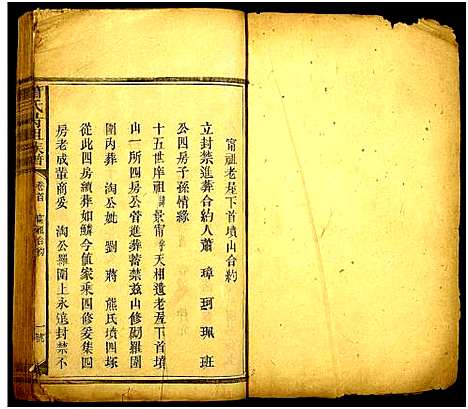 甯祖老屋下首墳山合約
立封禁進葬合約人蕭 璋 珂 珮 班
公四房子孫情緣
十五世庠祖諱景甯字天相遺老屋下首墳
山一所四房公管進葬蓄禁茲山修砌羅圍
圍內葬 淘公妣 劉 蔣 熊氏墳四塚
從此四房續葬如鱗今值家乘四修爰集四
房老成葷商妥 淘公羅圍上永追封禁不
蕭氏 祖 族譜
卷首